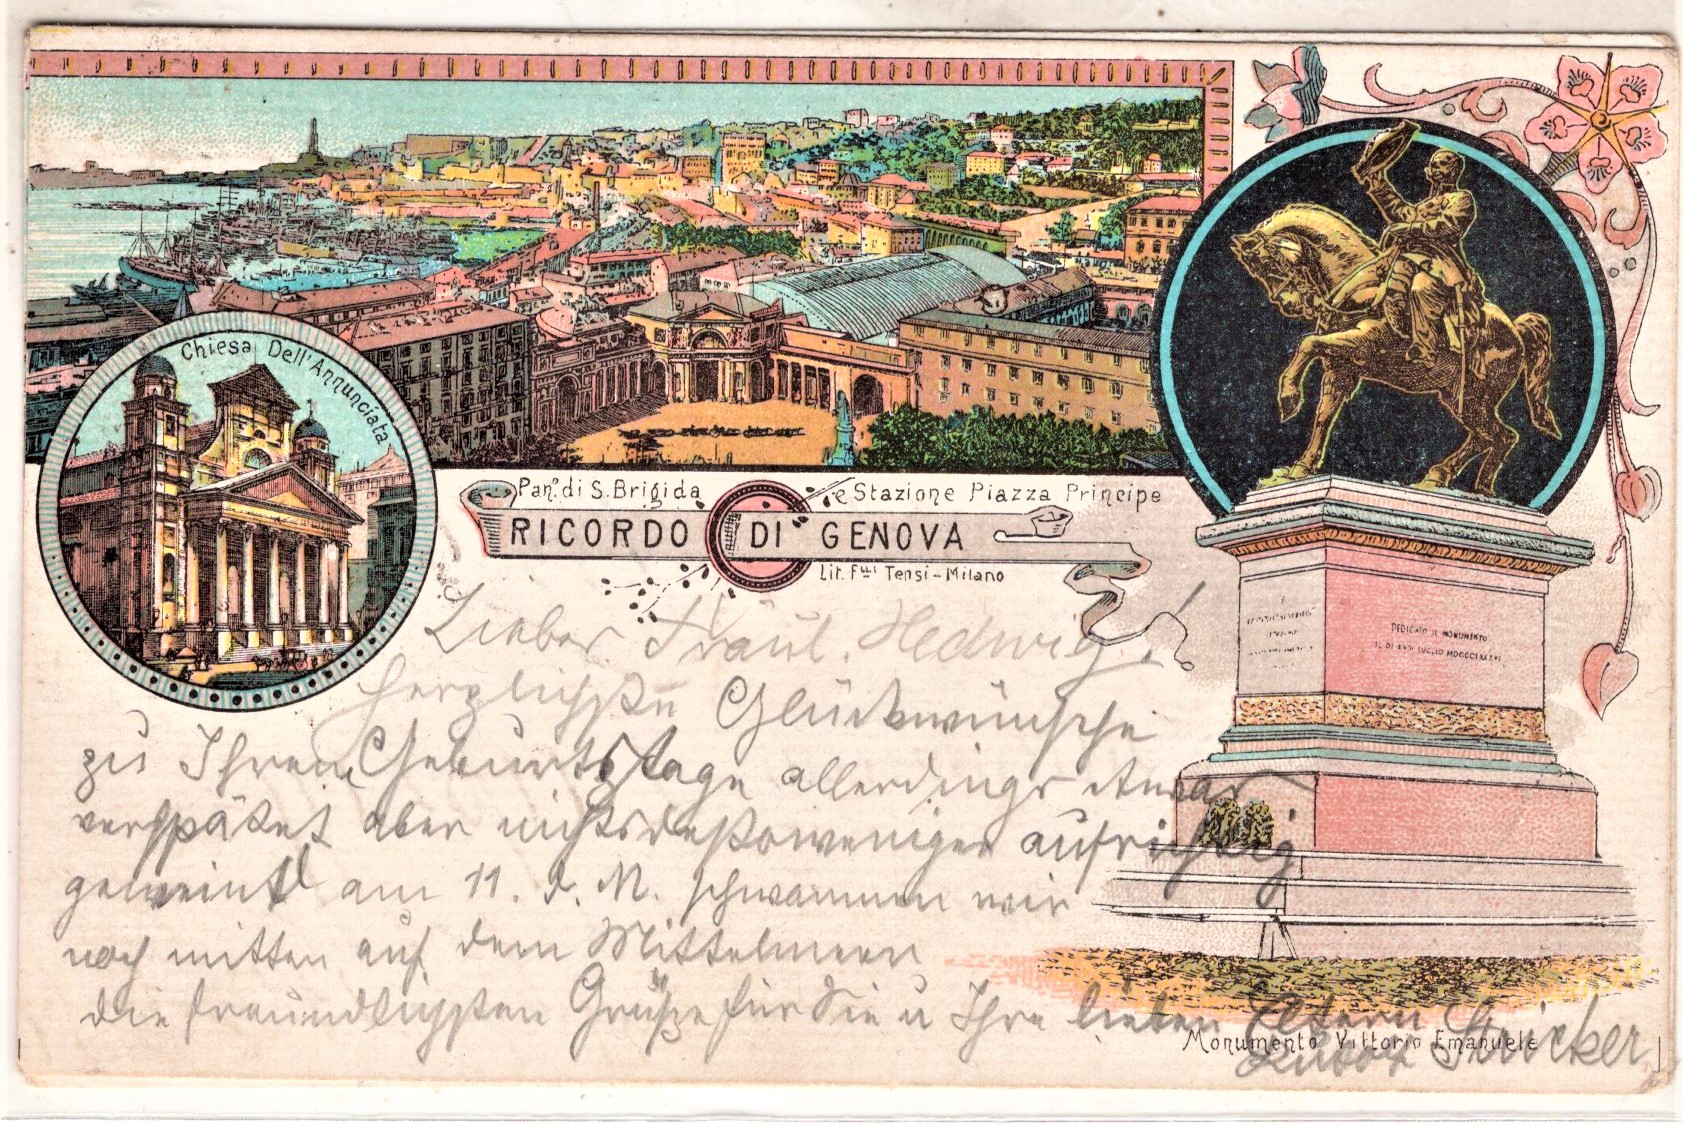 Chiesa Dell'Annunciata
Pan.º di S. Brigida e Stazione Piazza Principe
RICORDO DI GENOVA
Lit. F.lli Tensi - Milano
DEDICATO IL MONUMENTO
IL DI XVIII LUGLIO MDCCCLXXXVI
Liebes Fräul. Hedwig!
Herzlichste Glückwünsche
zu Ihrem Geburtstage allerdings etwas
verspätet aber nichtsdestoweniger aufrichtig
gemeint am 11. d. M. schwammen wir
noch mitten auf dem Mittelmeer
die freundlichsten Grüße für Sie u Ihre lieben Eltern
Monumento Vittorio Emanuele